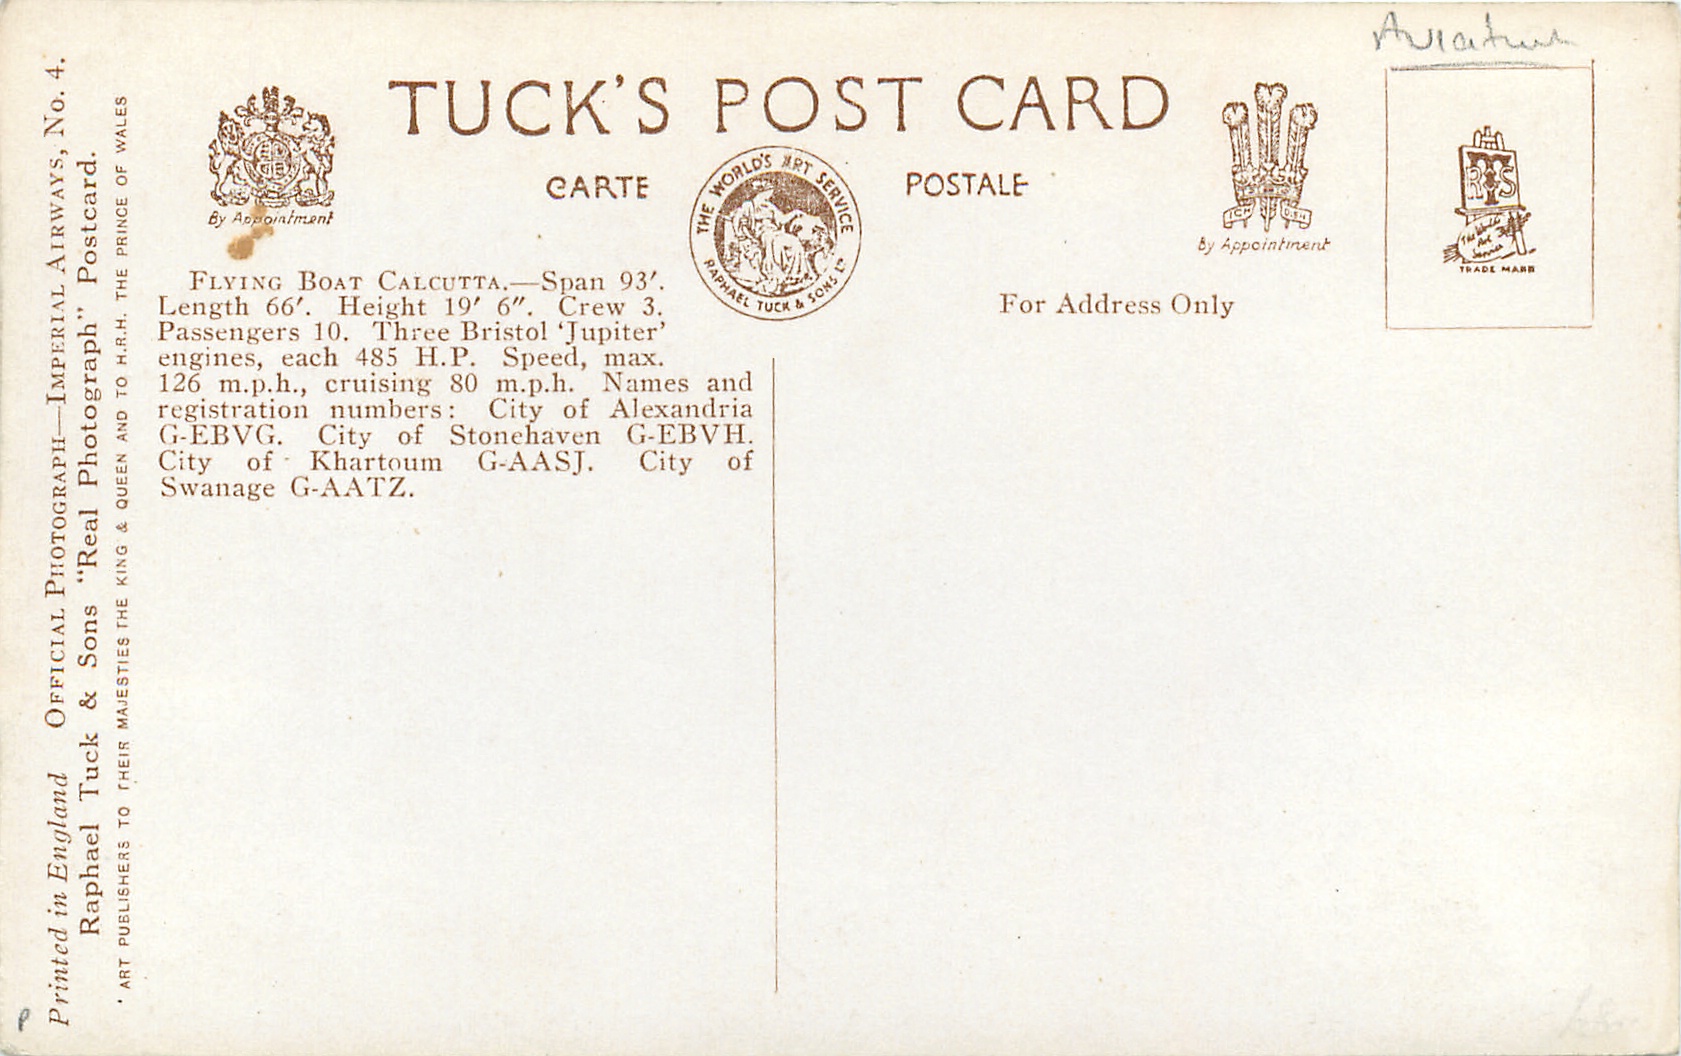 Aviation
TUCK'S POST CARD
CARTE POSTALE
By Appointment
THE WORLD'S ART SERVICE
RAPHAEL TUCK & SONS LTD
ICH DIEN
By Appointment
RTS
The World's
Art
Service
TRADE MARK
FLYING BOAT CALCUTTA.—Span 93′.
Length 66′. Height 19′ 6″. Crew 3.
Passengers 10. Three Bristol ‘Jupiter’
engines, each 485 H.P. Speed, max.
126 m.p.h., cruising 80 m.p.h. Names and
registration numbers: City of Alexandria
G-EBVG. City of Stonehaven G-EBVH.
City of Khartoum G-AASJ. City of
Swanage G-AATZ.
For Address Only
Printed in England OFFICIAL PHOTOGRAPH—IMPERIAL AIRWAYS, No. 4.
Raphael Tuck & Sons "Real Photograph" Postcard.
ART PUBLISHERS TO THEIR MAJESTIES THE KING & QUEEN AND TO H.R.H. THE PRINCE OF WALES
P